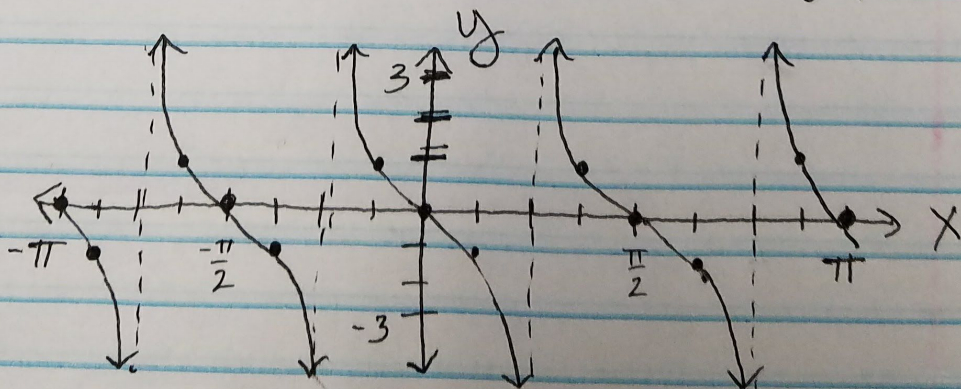 y
3
-π
-π/2
π/2
π
X
-3